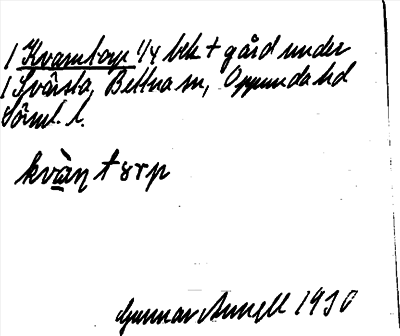 1 Kvarntorp 1/4 bek t gård under
1 Svärsta, Bettna sn, Oppunda hd
Söml. l.
kvàn t orp
Gunnar 1930